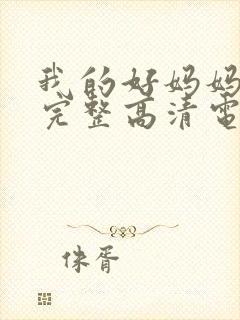 我的好妈妈
完整高清电
侏胥